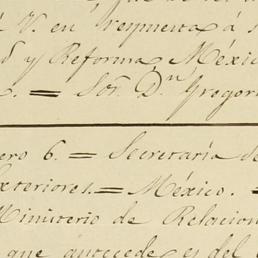 á V. en respuesta á s
d y Reforma México
= Sor. Dn. Gregor
ero 6. = Secretaría de
xteriores. = México. =
Ministerio de Relacion
que antecede es del